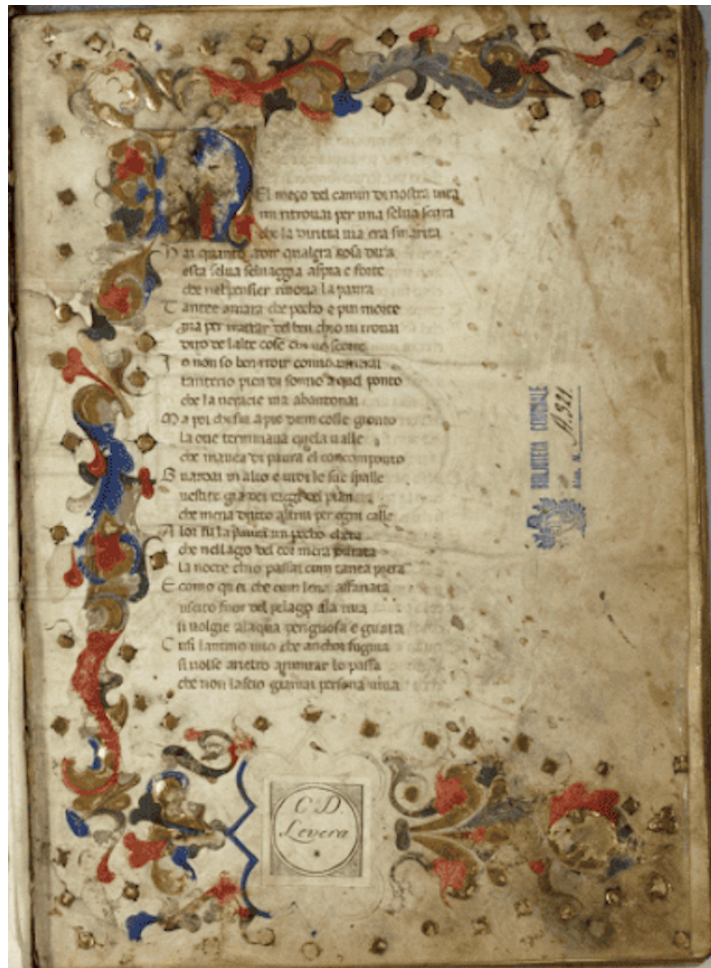 El meço del camin di nostra uita
mi ritrouai per una selua scura
che la diritta uia era smarita
H ai quanto adir qualera cosa dura
esta selua seluaggia aspra e forte
che nel pensier rinoua la paura
T ante amara che pocho e piu morte
ma per tractar del ben chio ui trouai
diro de laltre cose chi uo scorte
I o non so ben ridir uintrai
tanterio pien di sonno a quel ponto
che la ueracie uia abandonai
M a poi chi fui a pie dum colle gionto
la oue terminaua quela ualle
che mauea di paura el cor componto
G uardai in alto e uidi le sue spalle
uestite gia dei raggi del
che mena dritto altrui per ogni calle
A lor fu la paura un pocho cheta
che nel lago del cor mera durata
la nocte chio passai cum tanta pieta
E como quei che cum lena affanata
uscito fuor del pelago ala riua
si uolgie alaqua perigliosa e guata
C usi lanimo mio che anchor fugiua
si uolse arietro arimirar lo passo
che non lascio giamai persona uiua
BIBLIOTECA CENTRALE
A.321.
C. D.
Levera